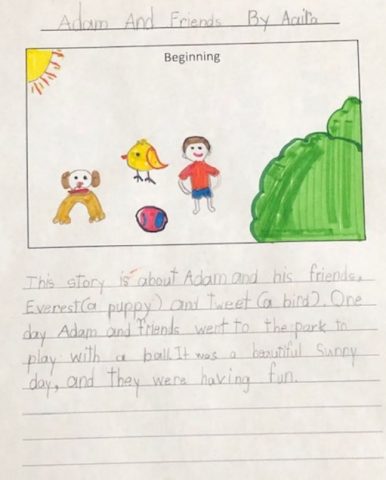 Adam And Friends By Aaira
Beginning
This story is about Adam and his friends,
Everest(a puppy) and Tweet (a bird). One
day Adam and friends went to the park to
play with a ball.It was a beautiful Sunny
day, and they were having fun.